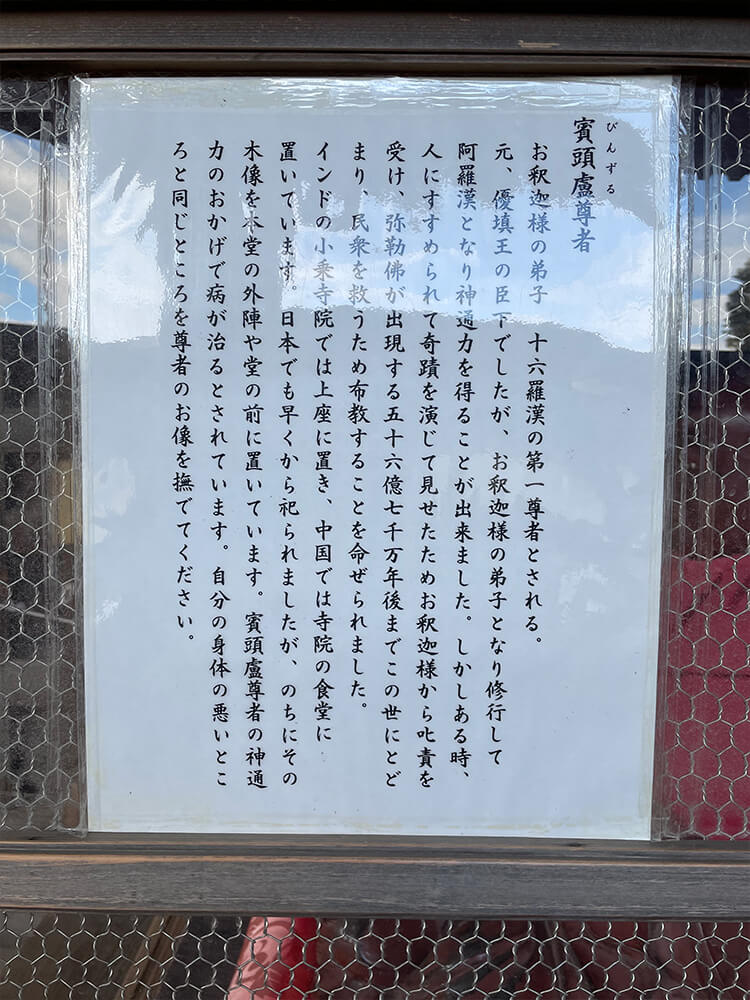 賓頭盧尊者
びんずる
お釈迦様の弟子　十六羅漢の第一尊者とされる。
元、優填王の臣下でしたが、お釈迦様の弟子となり修行して
阿羅漢となり神通力を得ることが出来ました。しかしある時、
人にすすめられて奇蹟を演じて見せたためお釈迦様から叱責を
受け、弥勒佛が出現する五十六億七千万年後までこの世にとど
まり、民衆を救うため布教することを命ぜられました。
インドの小乗寺院では上座に置き、中国では寺院の食堂に
置いています。日本でも早くから祀られましたが、のちにその
木像を本堂の外陣や堂の前に置いています。賓頭盧尊者の神通
力のおかげで病が治るとされています。自分の身体の悪いとこ
ろと同じところを尊者のお像を撫でてください。